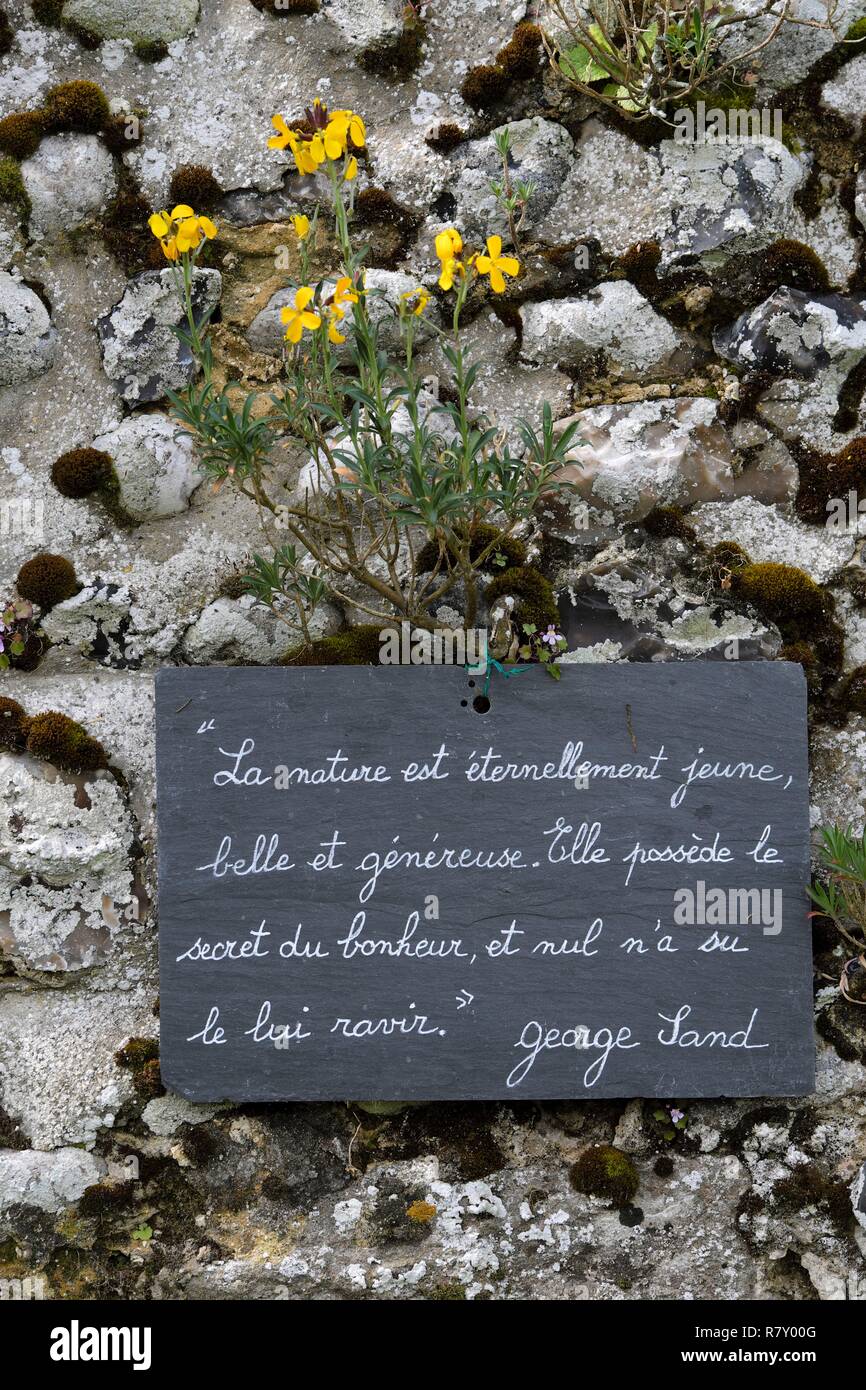 “La nature est éternellement jeune,
belle et généreuse. Elle possède le
secret du bonheur, et nul n'a su
le lui ravir. »
George Sand
a
alamy
a
alamy
a
alamy
a
a
alamy
Image ID: R7Y00G
www.alamy.com